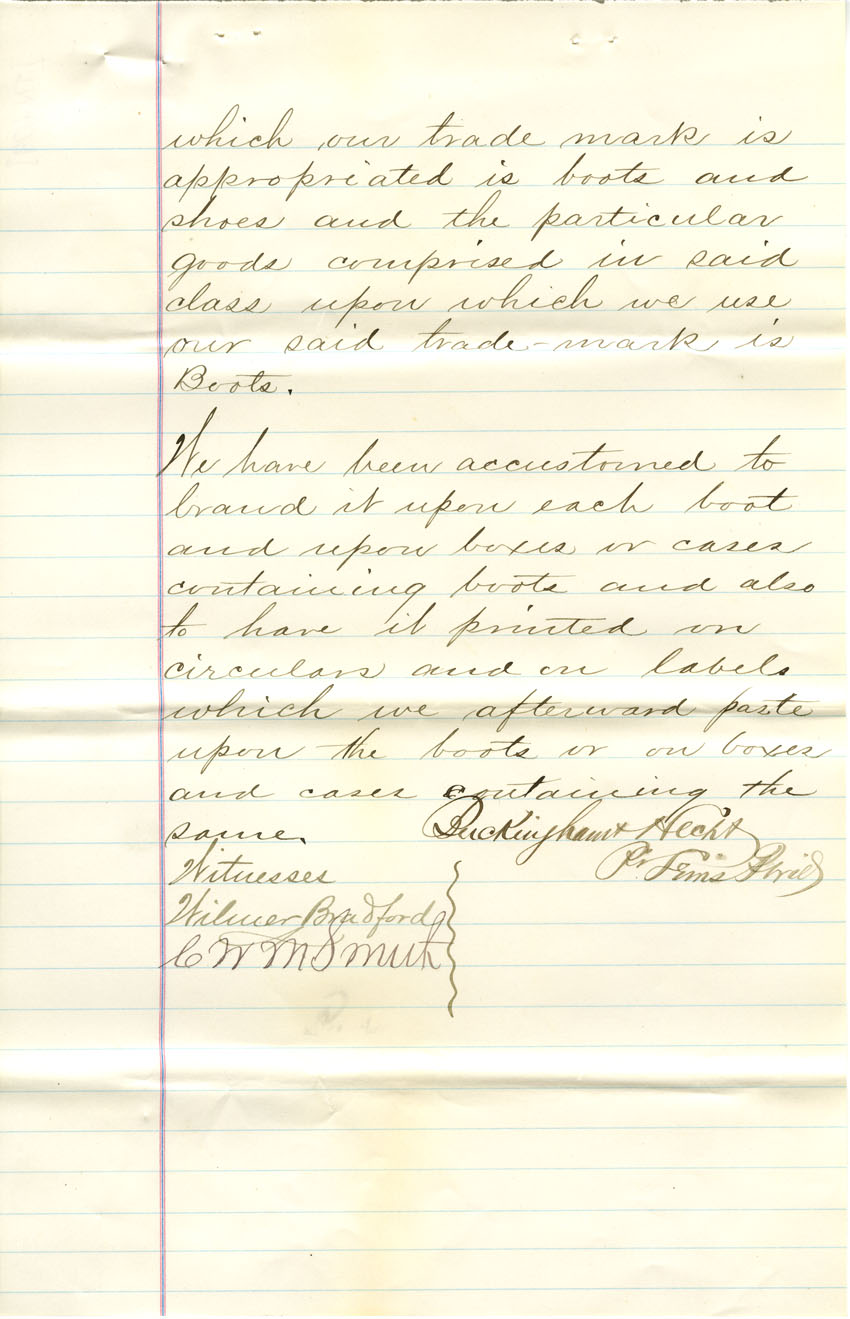 which our trade mark is
appropriated is boots and
shoes and the particular
goods comprised in said
class upon which we use
our said trade-mark is
Boots.
We have been accustomed to
brand it upon each boot
and upon boxes or cases
containing boots and also
to have it printed on
circulars and on labels
which we afterward paste
upon the boots or on boxes
and cases containing the
same.
Buckingham & Hecht
Pr
Witnesses
Wilmer Bradford
C W M Smith